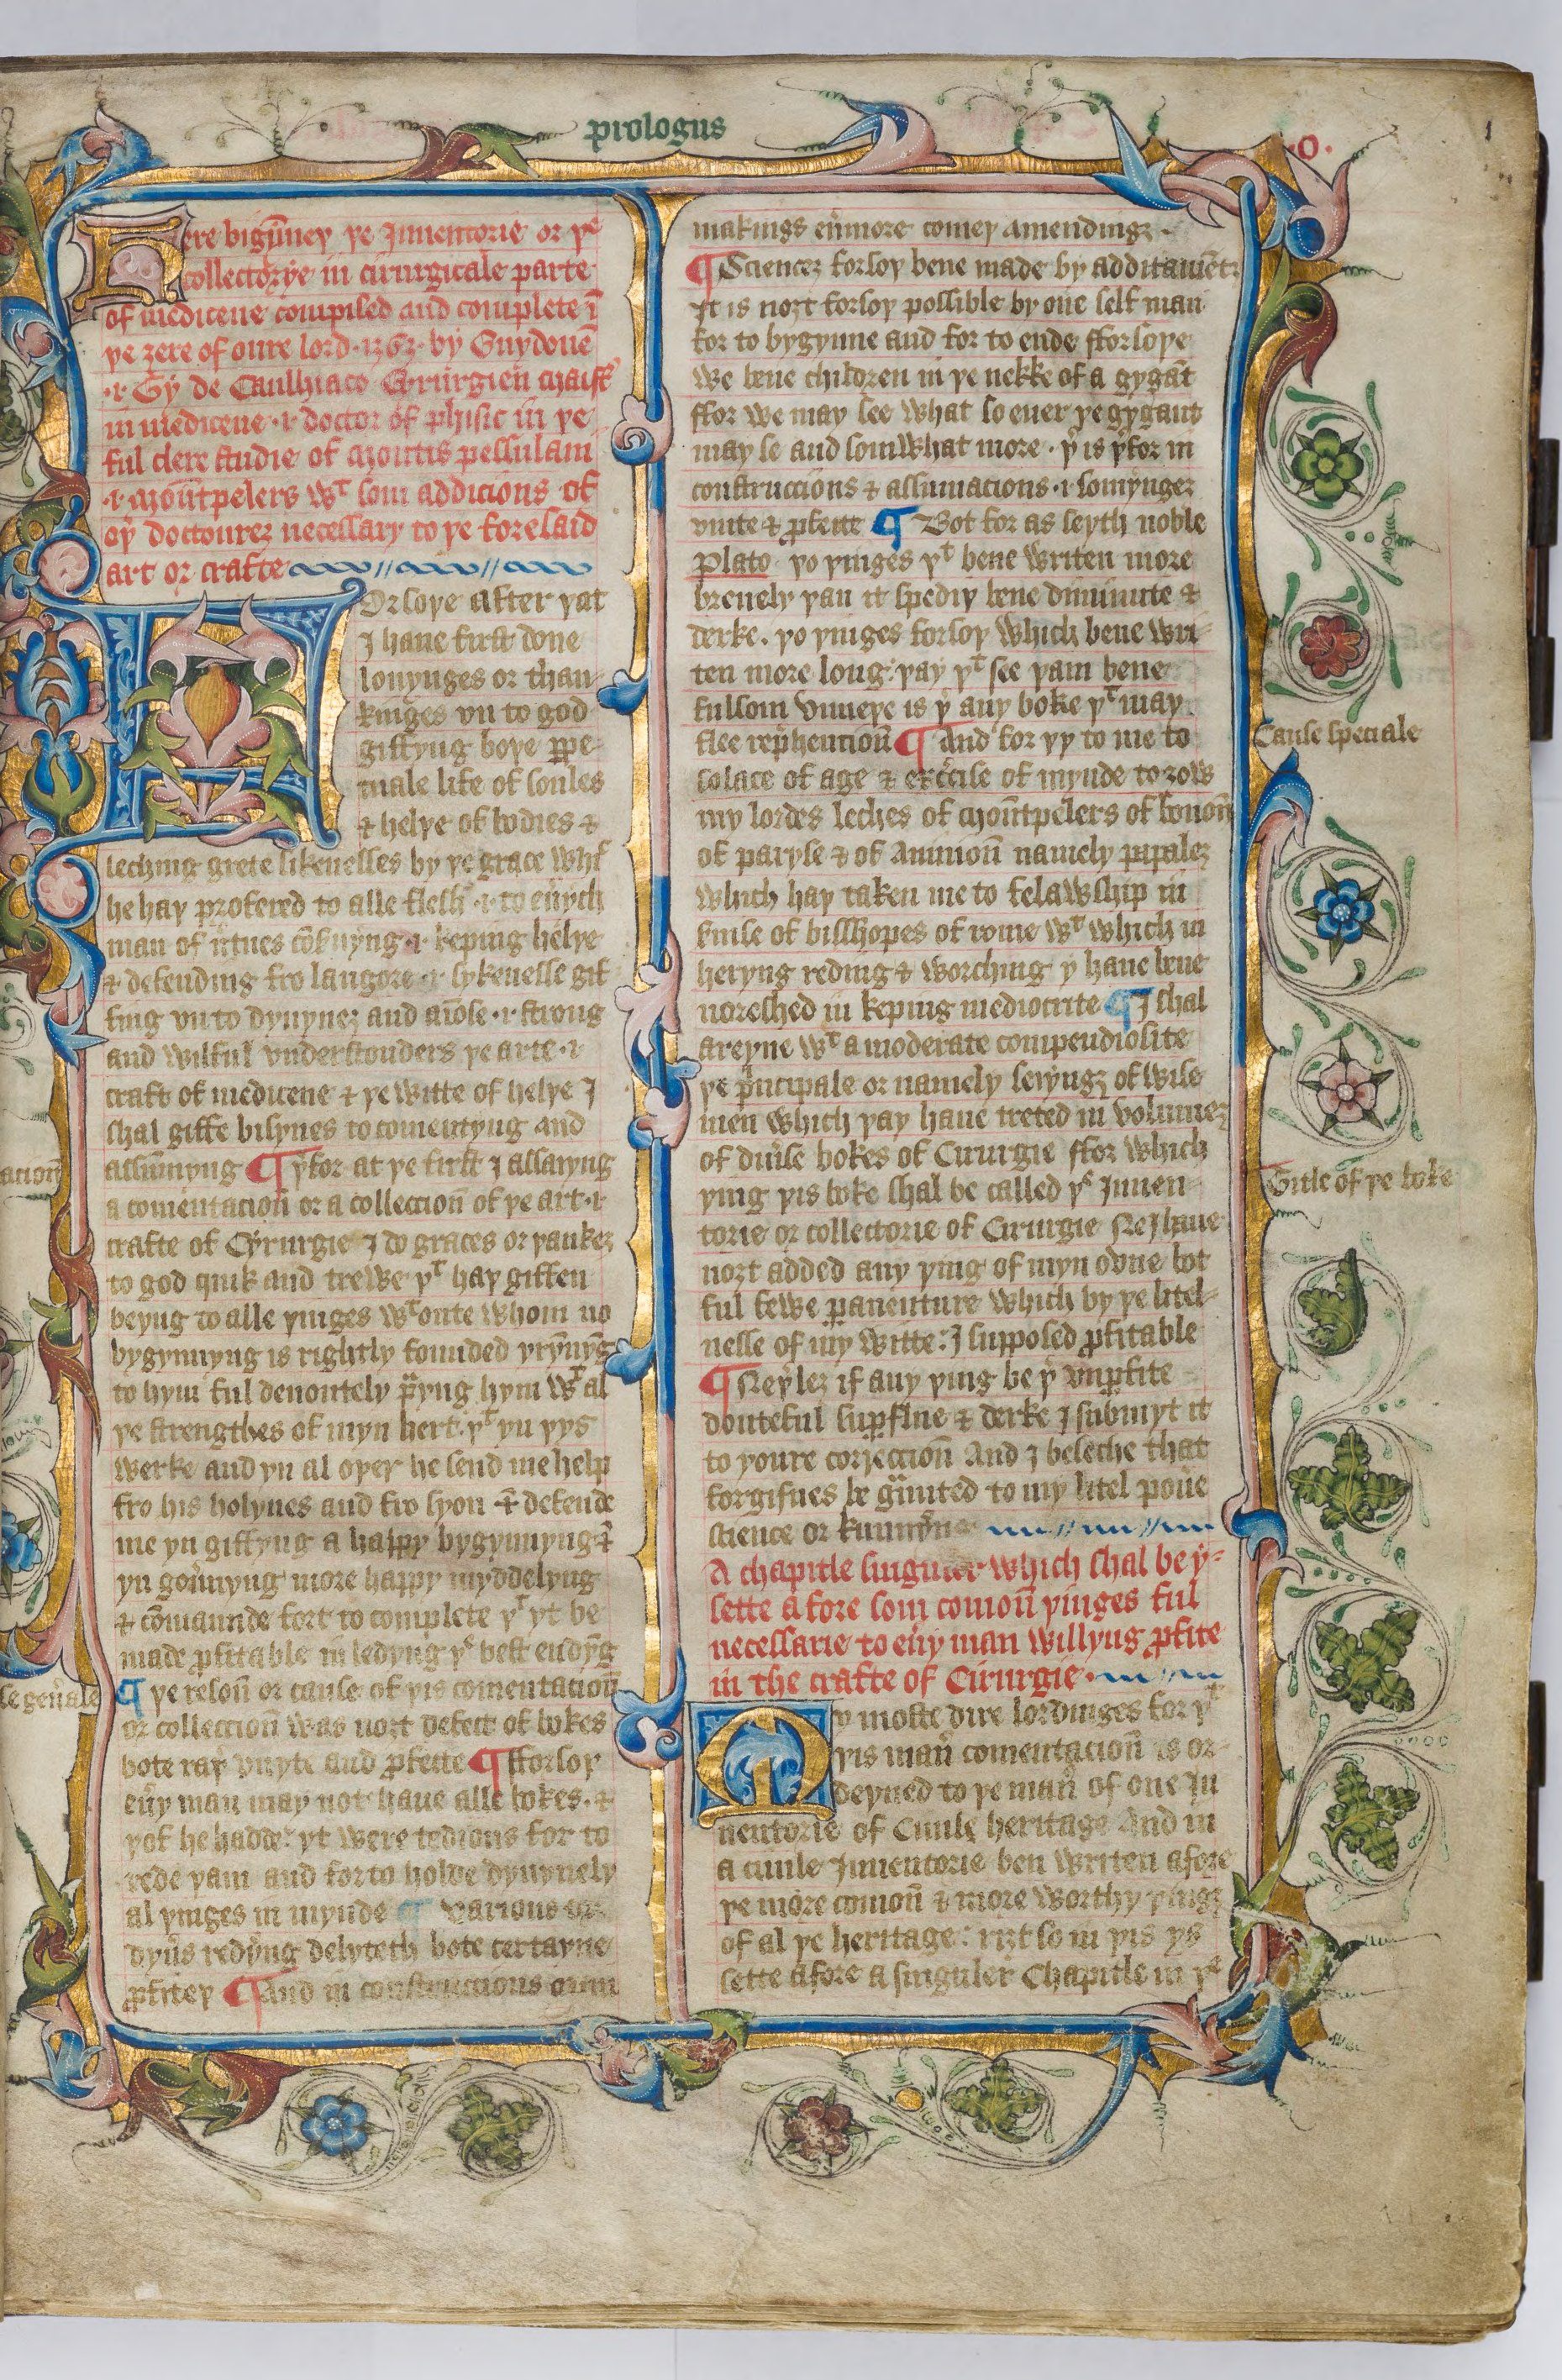 prologus
Here bigȳney ye Inuentorie or yͤ
collectorye in cirurgicale parte
of medicene compiled and complete ī
ye zere of oure lord 1363 by Guydouē
.i. Gy de Caulhiaco Cirurgien maistʳ
in medicene .i. doctor of phisic in ye
ful clere studie of Montis pessulam
.i. Moūtpelers wᵗ som addicions of
oy̓ doctourez necessary to ye foresaid
art or crafte
Forsoye after yat
I haue first done
louynges or than
kinges vn to god
giffyng boye ꝑpe
tuale life of soules
& helye of bodies &
leching grete sikenesses by ye grace whi
he hay profered to alle flesh .i. to eu̓ych
man of v̓tues cōs̓uyng .i. keping helye
& defending fro langore .i. sykenesse gif
fing vnto dyuynez and
and wilful vnderstonders ye arte .i.
craft of medicene & ye witte of helye I
shal giffe bisynes to comentyng and
assūmyng ¶ y̓for at ye first I assaiyng
a comentacioū or a collectioū of ye art .i.
crafte of Cyrurgie I do graces or yankez
to god quik and trewe yᵗ hay giffen
beyng to alle yinges wᵗoute whom no
bygynnyng is rightly founded yrȳnȳg
to hym ful deuoutely p̓yng hym wᵗ al
ye strengthes of myn hert yᵗ yn yys
werke and yn al oyer he send me help
fro his holynes and fro syon & defende
me yn giffyng a happy bygynnyng &
yn gou̓nyng more happy myddelyng
& cōmaunde fort to complete yᵗ yt be
made ꝓfitable in ledyng yͤ best endȳg
¶ ye resoū or cause of yis comentacioū
or collectioū was nozt defect of bokes
bote ray vnyte and ꝓfette ¶ fforsoy
eu̓y man may not haue alle bokes &
yof he hadde yt were tedious for to
rede yam and forto holde dyuynely
al yinges in mynde ¶ various
dyu̓s redȳng delyteth bote certayne
ꝓfitey ¶ And in constructions or in
makings eu̓more comey amendingz
¶ Sciencez forsoy bene made by additamētz
It is nozt forsoy possible by one self man
for to bygynne and for to ende fforsoye
we bene children in ye nekke of a gygāt
ffor we may see what so euer ye gygant
may se and somwhat more . y̓ is y̓for in
constructions & assumacions .i. somȳngez
vnite & ꝓfette ¶ Bot for as seyth noble
Plato yo yinges yᵗ bene writen more
breuely yan it spediy bene diminute &
derke . yo yinges forsoy which bene wri-
ten more long : yay yᵗ see yam bene
fulsom vnneye is y̓ any boke yᵗ may
flee rep̓hencioū ¶ And for yy to me to
solace of age & ex̓cise of mynde to zow
my lordes leches of Moūtpelers of bonoū
of paryse & of Auinioū namely papalez
which hay taken me to felawship in
suise of bisshopes of rome wᵗ which in
heryng reding & worching y haue bene
noreshed in keping mediocrite ¶ I shal
streyne wᵗ a moderate compendiosite
ye p̓ncipale or namely seiyngz of wise
men which yay haue treted in volumez
of diu̓se bokes of Cirurgie ffor which
ying yis boke shal be called yͤ Inuen-
torie or collectorie of Cirurgie Ne I haue
nozt added any ying of myn owne bot
ful fewe ꝑauenture which by ye litel-
nesse of my witte : I supposed ꝓfitable
¶ Ney̓lez if any ying be y̓ vnꝑfite
douteful suꝑflue & derke I submyt it
to youre correctioū And I beseche that
forgifnes be gʳunted to my litel pou̓e
science or kunnȳg
A chapitle singuler which shal be y-
sette afore som comoū yinges ful
necessarie to eu̓y man willyng ꝓfite
in the crafte of Cirurgie
My moste dire lordinges for yᵗ
yis man̓ comentacioū is or-
deyned to ye man̓ of one In
uentorie of Ciuile heritage And in
a ciuile Inuentorie ben writen afore
ye more comoū & more worthy yingz
of al ye heritage : rizt so in yis ys
sette afore a singuler Chapitle in yͤ
Cause speciale
Title of ye boke